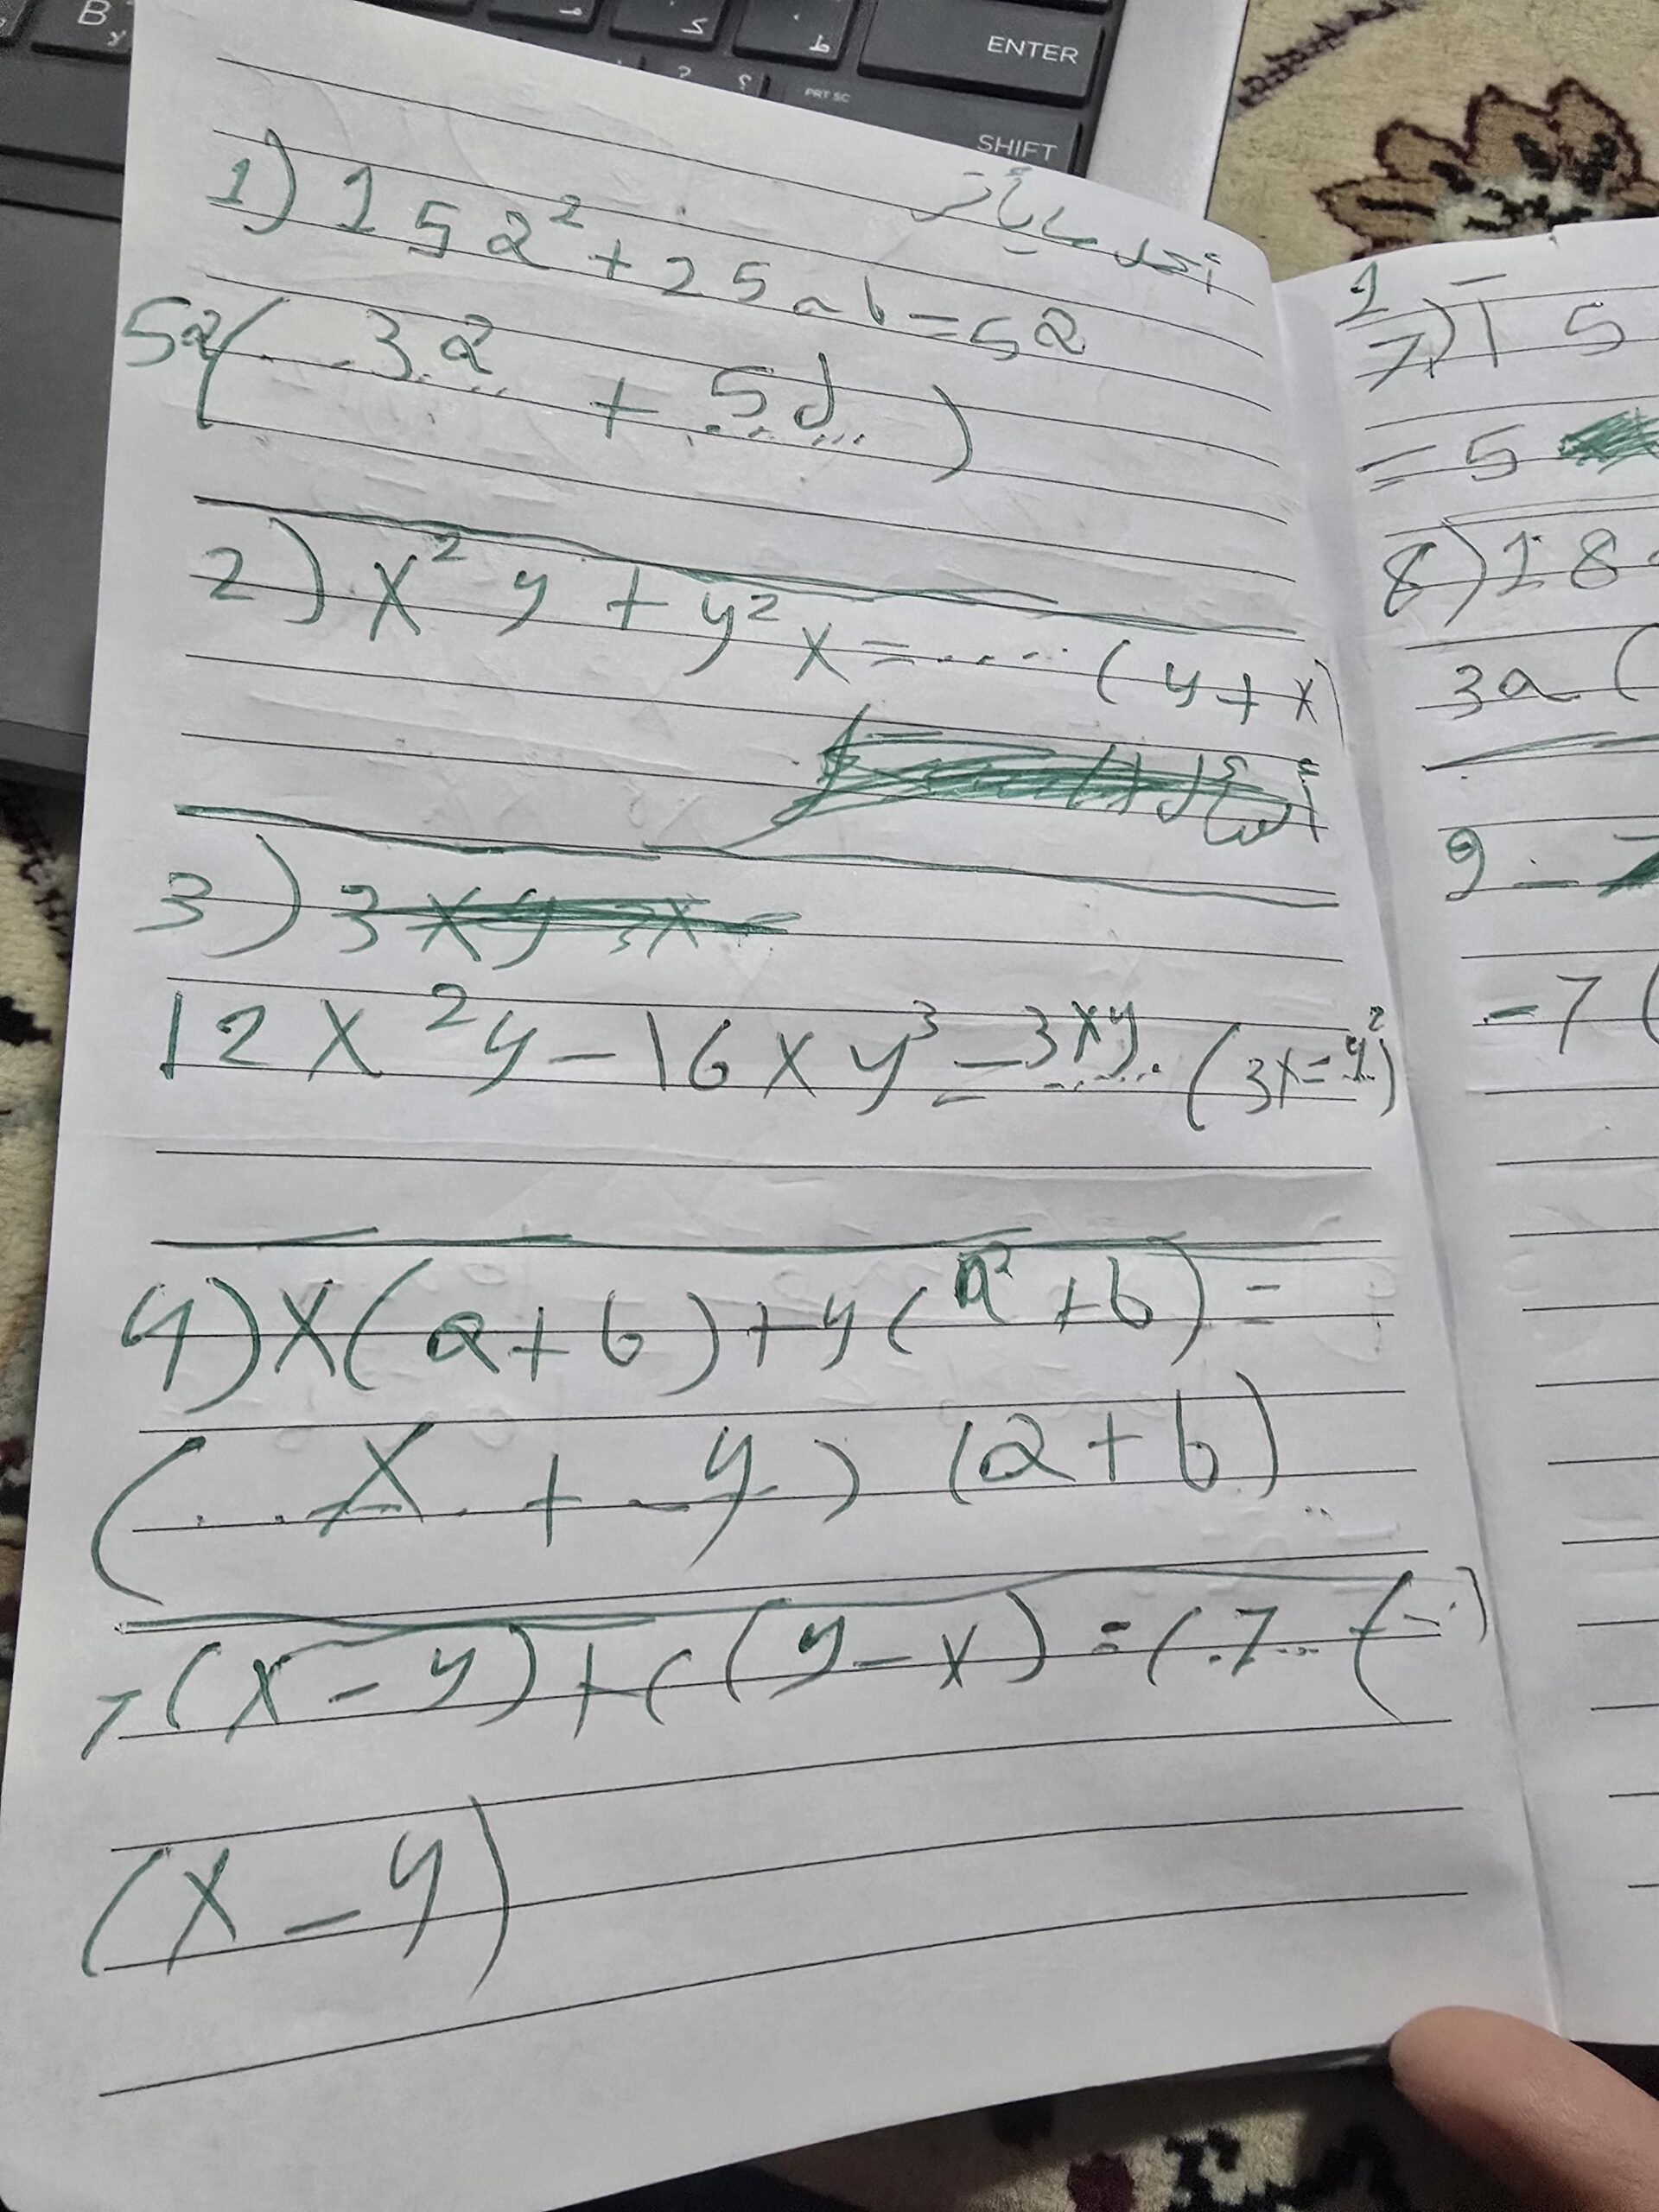 B
ENTER
PRT SC
SHIFT
1) 15a² + 25ab = 5a
5a( ... 3a ... + ... 5b ... )
2) x² y + y² x = ..... ( y + x )
3) 3
12 x² y - 16 x y³ = 3xy ..... ( 3x = y² )
4) x( a + b ) + y ( a² + b ) =
( ... x . + - y - ) ( a + b ) ..
7 ( x - y ) + c ( y - x ) = ( .7... ( - .. )
( x - y )
1
7) 1 5
= 5
8) 18
3a (
9 -
-7 (